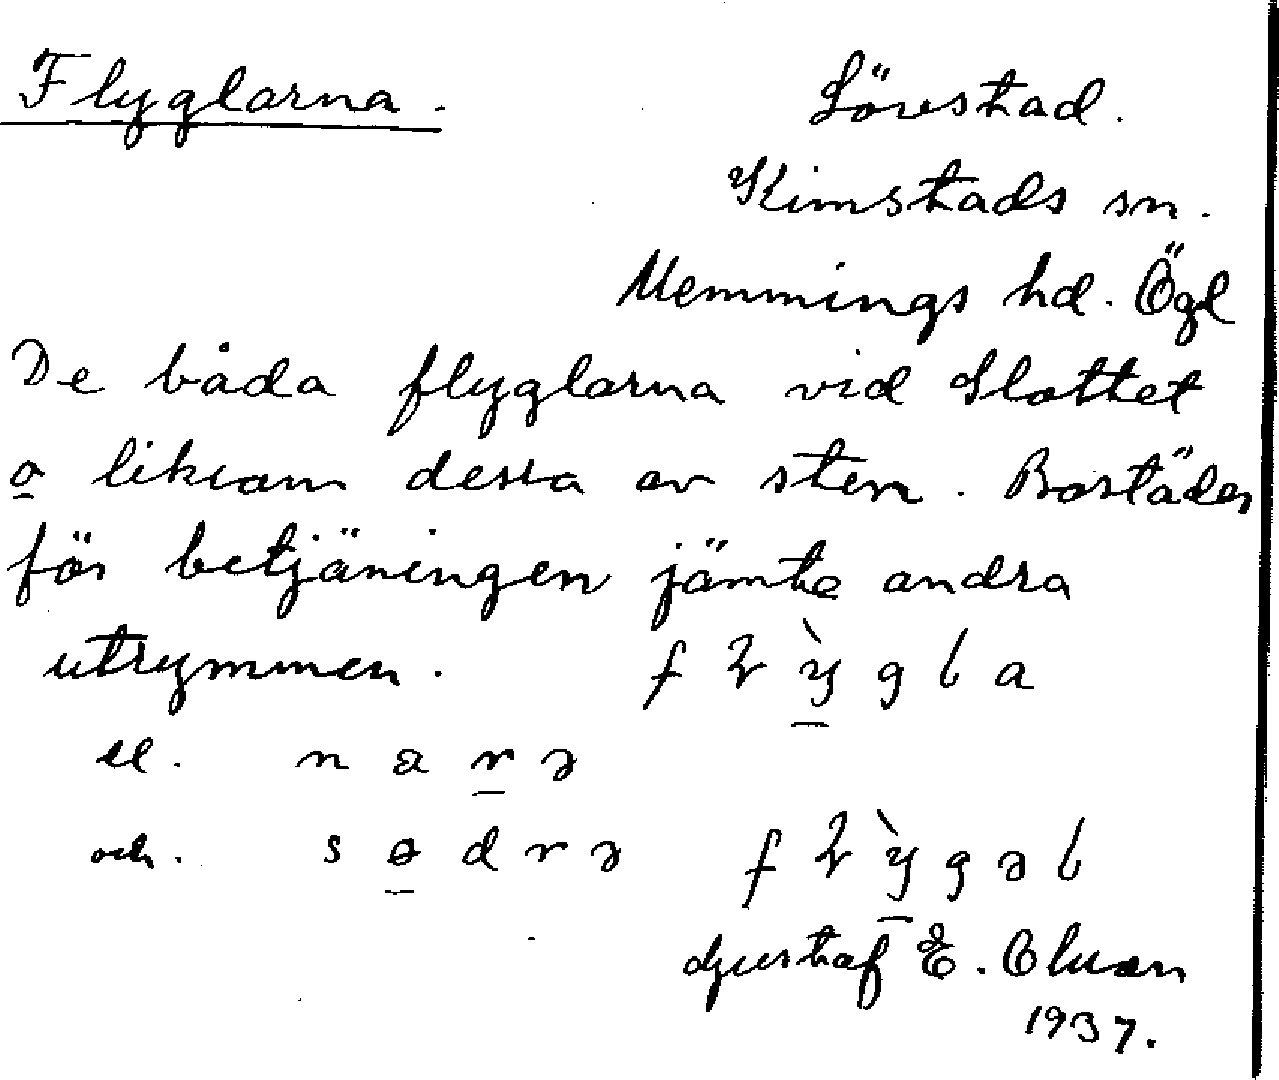 Flyglarna. Lövstad.
Kimstads sn.
Memmings hd. Ögl
De båda flyglarna vid Slottet
o liksom dessa av sten. Bostäder
för betjäningen jämte andra
utrymmen. f l ỳ g l a
el. n a r ə
och. s ɵ d r ə f l ỳ g ə l
Gustaf E. Olsson
1937.